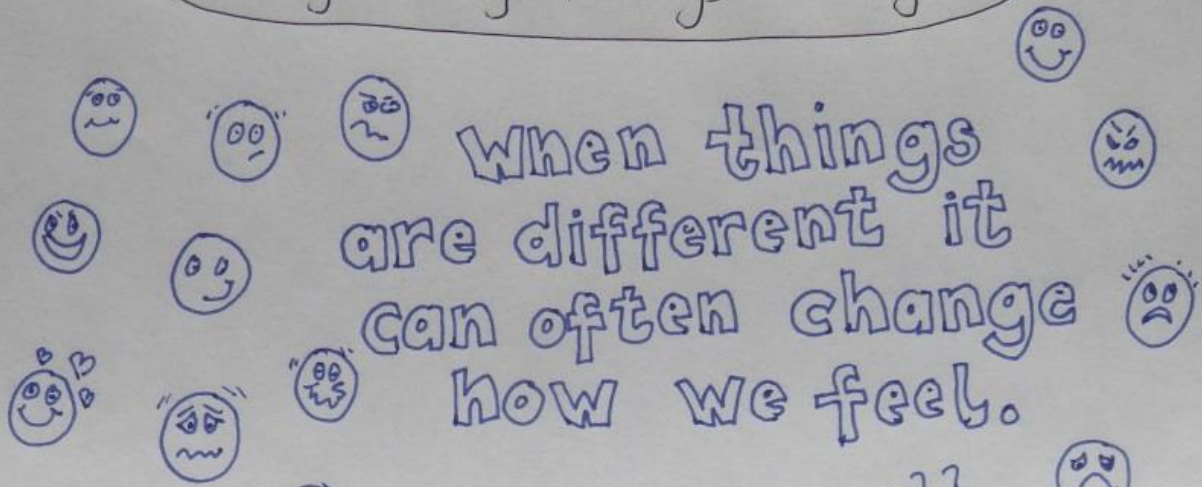 When things
are different it
can often change
how we feel.
??